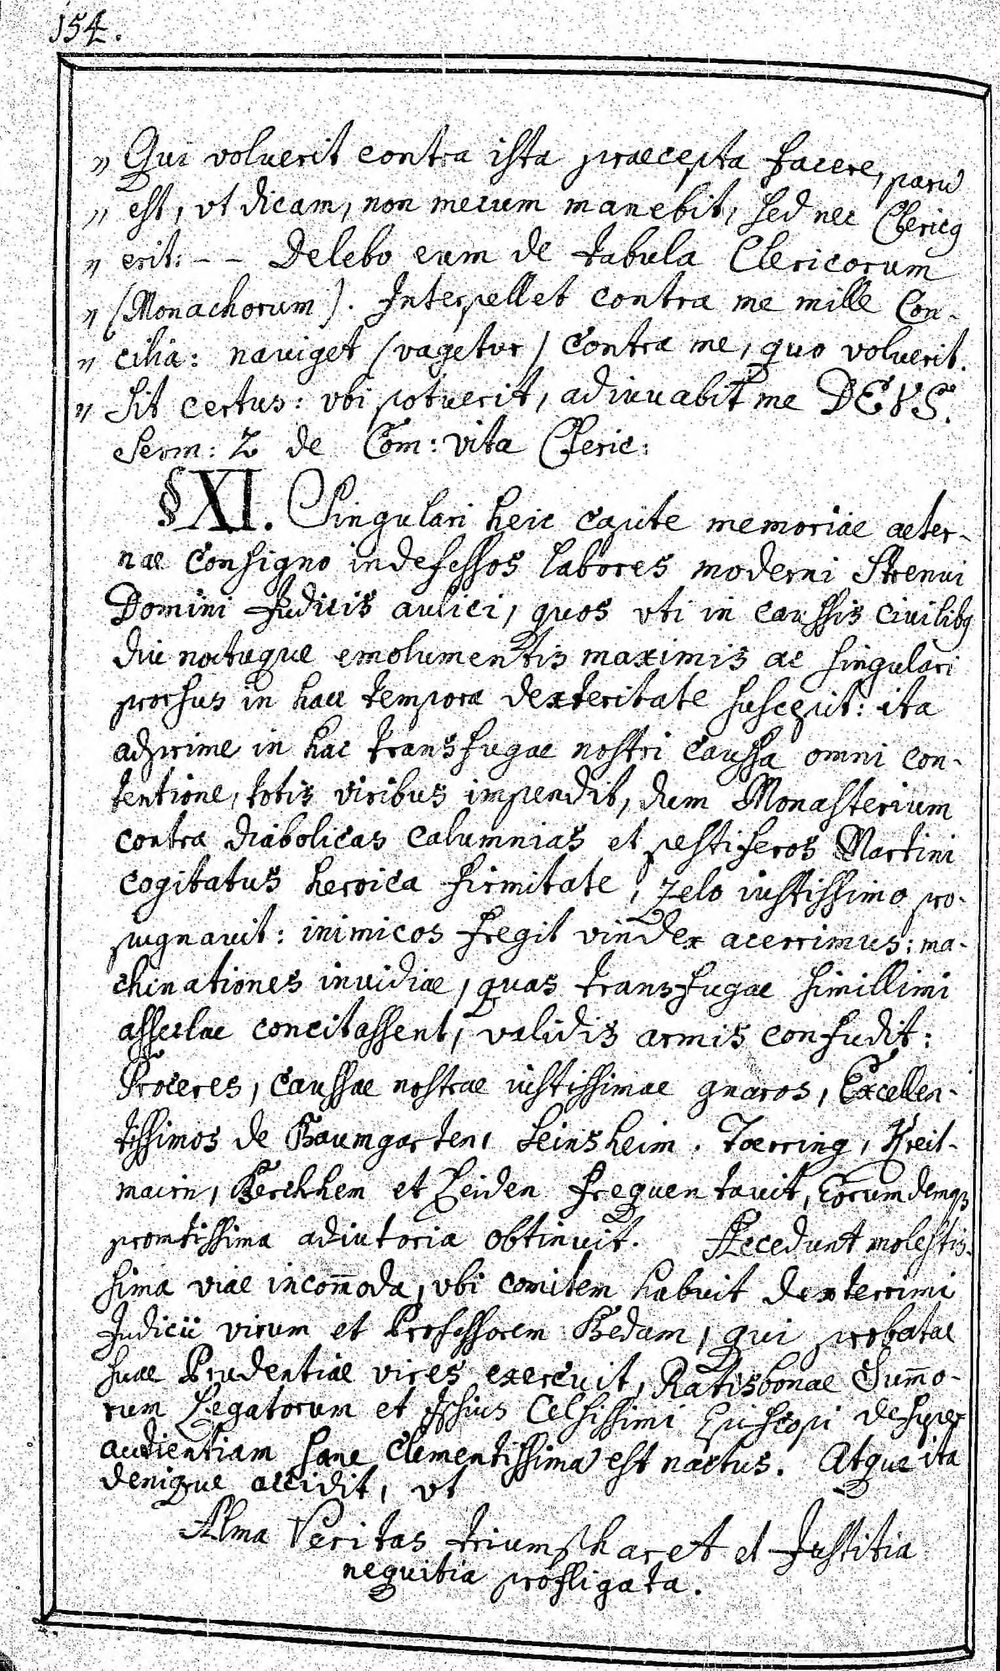 154.
„ Qui voluerit contra ista praecepta facere, parū
„ est, vt dicam, non mecum manebit, sed nec Clericq
„ erit: - - Delebo eum de tabula Clericorum
„ (Monachorum). Interpellet contra me mille Con-
„ cilia: nauiget (vagetur) contra me, quo voluerit.
„ Sit certus: vbi potuerit, adiuuabit me DEVS.
Serm: 2 de Com: vita Cleric:
§XI. Singulari heic capite memoriae aeter-
nae consigno indefessos labores moderni Strenui
Domini Judicis aulici, quos vti in caussis ciuilibq
diu noctuque emolumentis maximis ac singulari
prorsus in hac tempora dexteritate suscepit: ita
adprime in hac transfugae nostri caussa omni con-
tentione, totis viribus impendit, dum Monasterium
contra diabolicas calumnias et pestiferos Martini
cogitatus heroica firmitate, zelo iustissimo pro-
pugnauit: inimicos fregit vindex acerrimus: ma-
chinationes inuidiae, quas transfugae simillimi
asseclae concitassent, validis armis confudit:
Proceres, caussae nostrae iustissimae gnaros, Excellen-
tissimos de Baumgarten, Seinsheim, Toerring, Kreit-
mairn, Berchhem et Leiden frequentauit, Eorumdemq3
promtissima adiutoria obtinuit. Accedunt molestis-
sima viae incom̄oda, vbi comitem habuit dexterrimi
Judicii virum et Professorem Bedam, qui probatae
suae Prudentiae vires exercuit, Ratisbonae Sum̄o-
rum Legatorum et Ipsius Celsissimi Episcopi desuper
audientiam sane Clementissimā est nactus. Atque ita
denique accidit, vt
Alma Veritas triumpharet et Justitia
nequitia profligata.